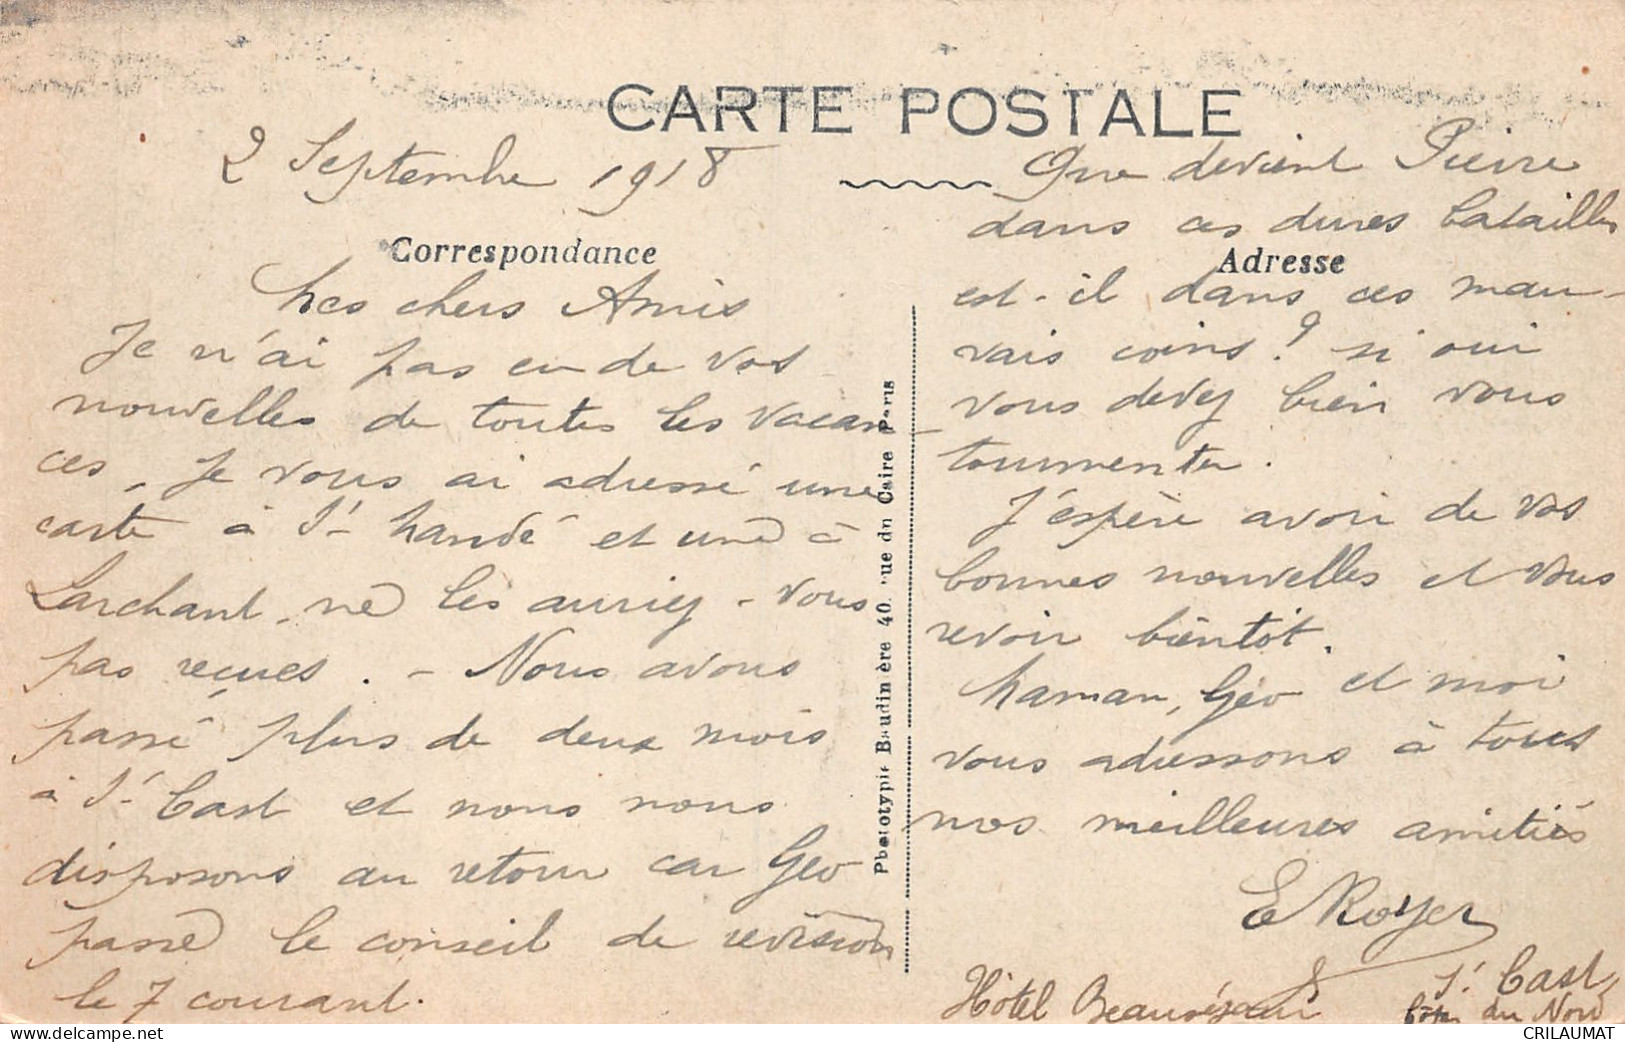 CARTE POSTALE
2 Septembre 1918
Correspondance
Mes chers Amis
Je n'ai pas eu de vos
nouvelles de toutes les vacan-
ces, Je vous ai adressé une
carte à St Mandé et une à
Larchant, ne les auriez-vous
pas reçues. - Nous avons
passé plus de deux mois
à St Cast et nous nous
disposons au retour car Géo
passe le conseil de revision
le 7 courant.
Phototypie Baudinière 40, rue du Caire Paris
Que devient Pierre
dans ces dures batailles
Adresse
est-il dans ces mau-
vais coins? si oui
vous devez bien vous
tourmenter.
J'espère avoir de vos
bonnes nouvelles et vous
revoir bientôt.
Maman, Géo et moi
vous adressons à tous
nos meilleures amitiés
E Royer
Hôtel Beauséjour St Cast
Côtes du Nord
CRILAUMAT